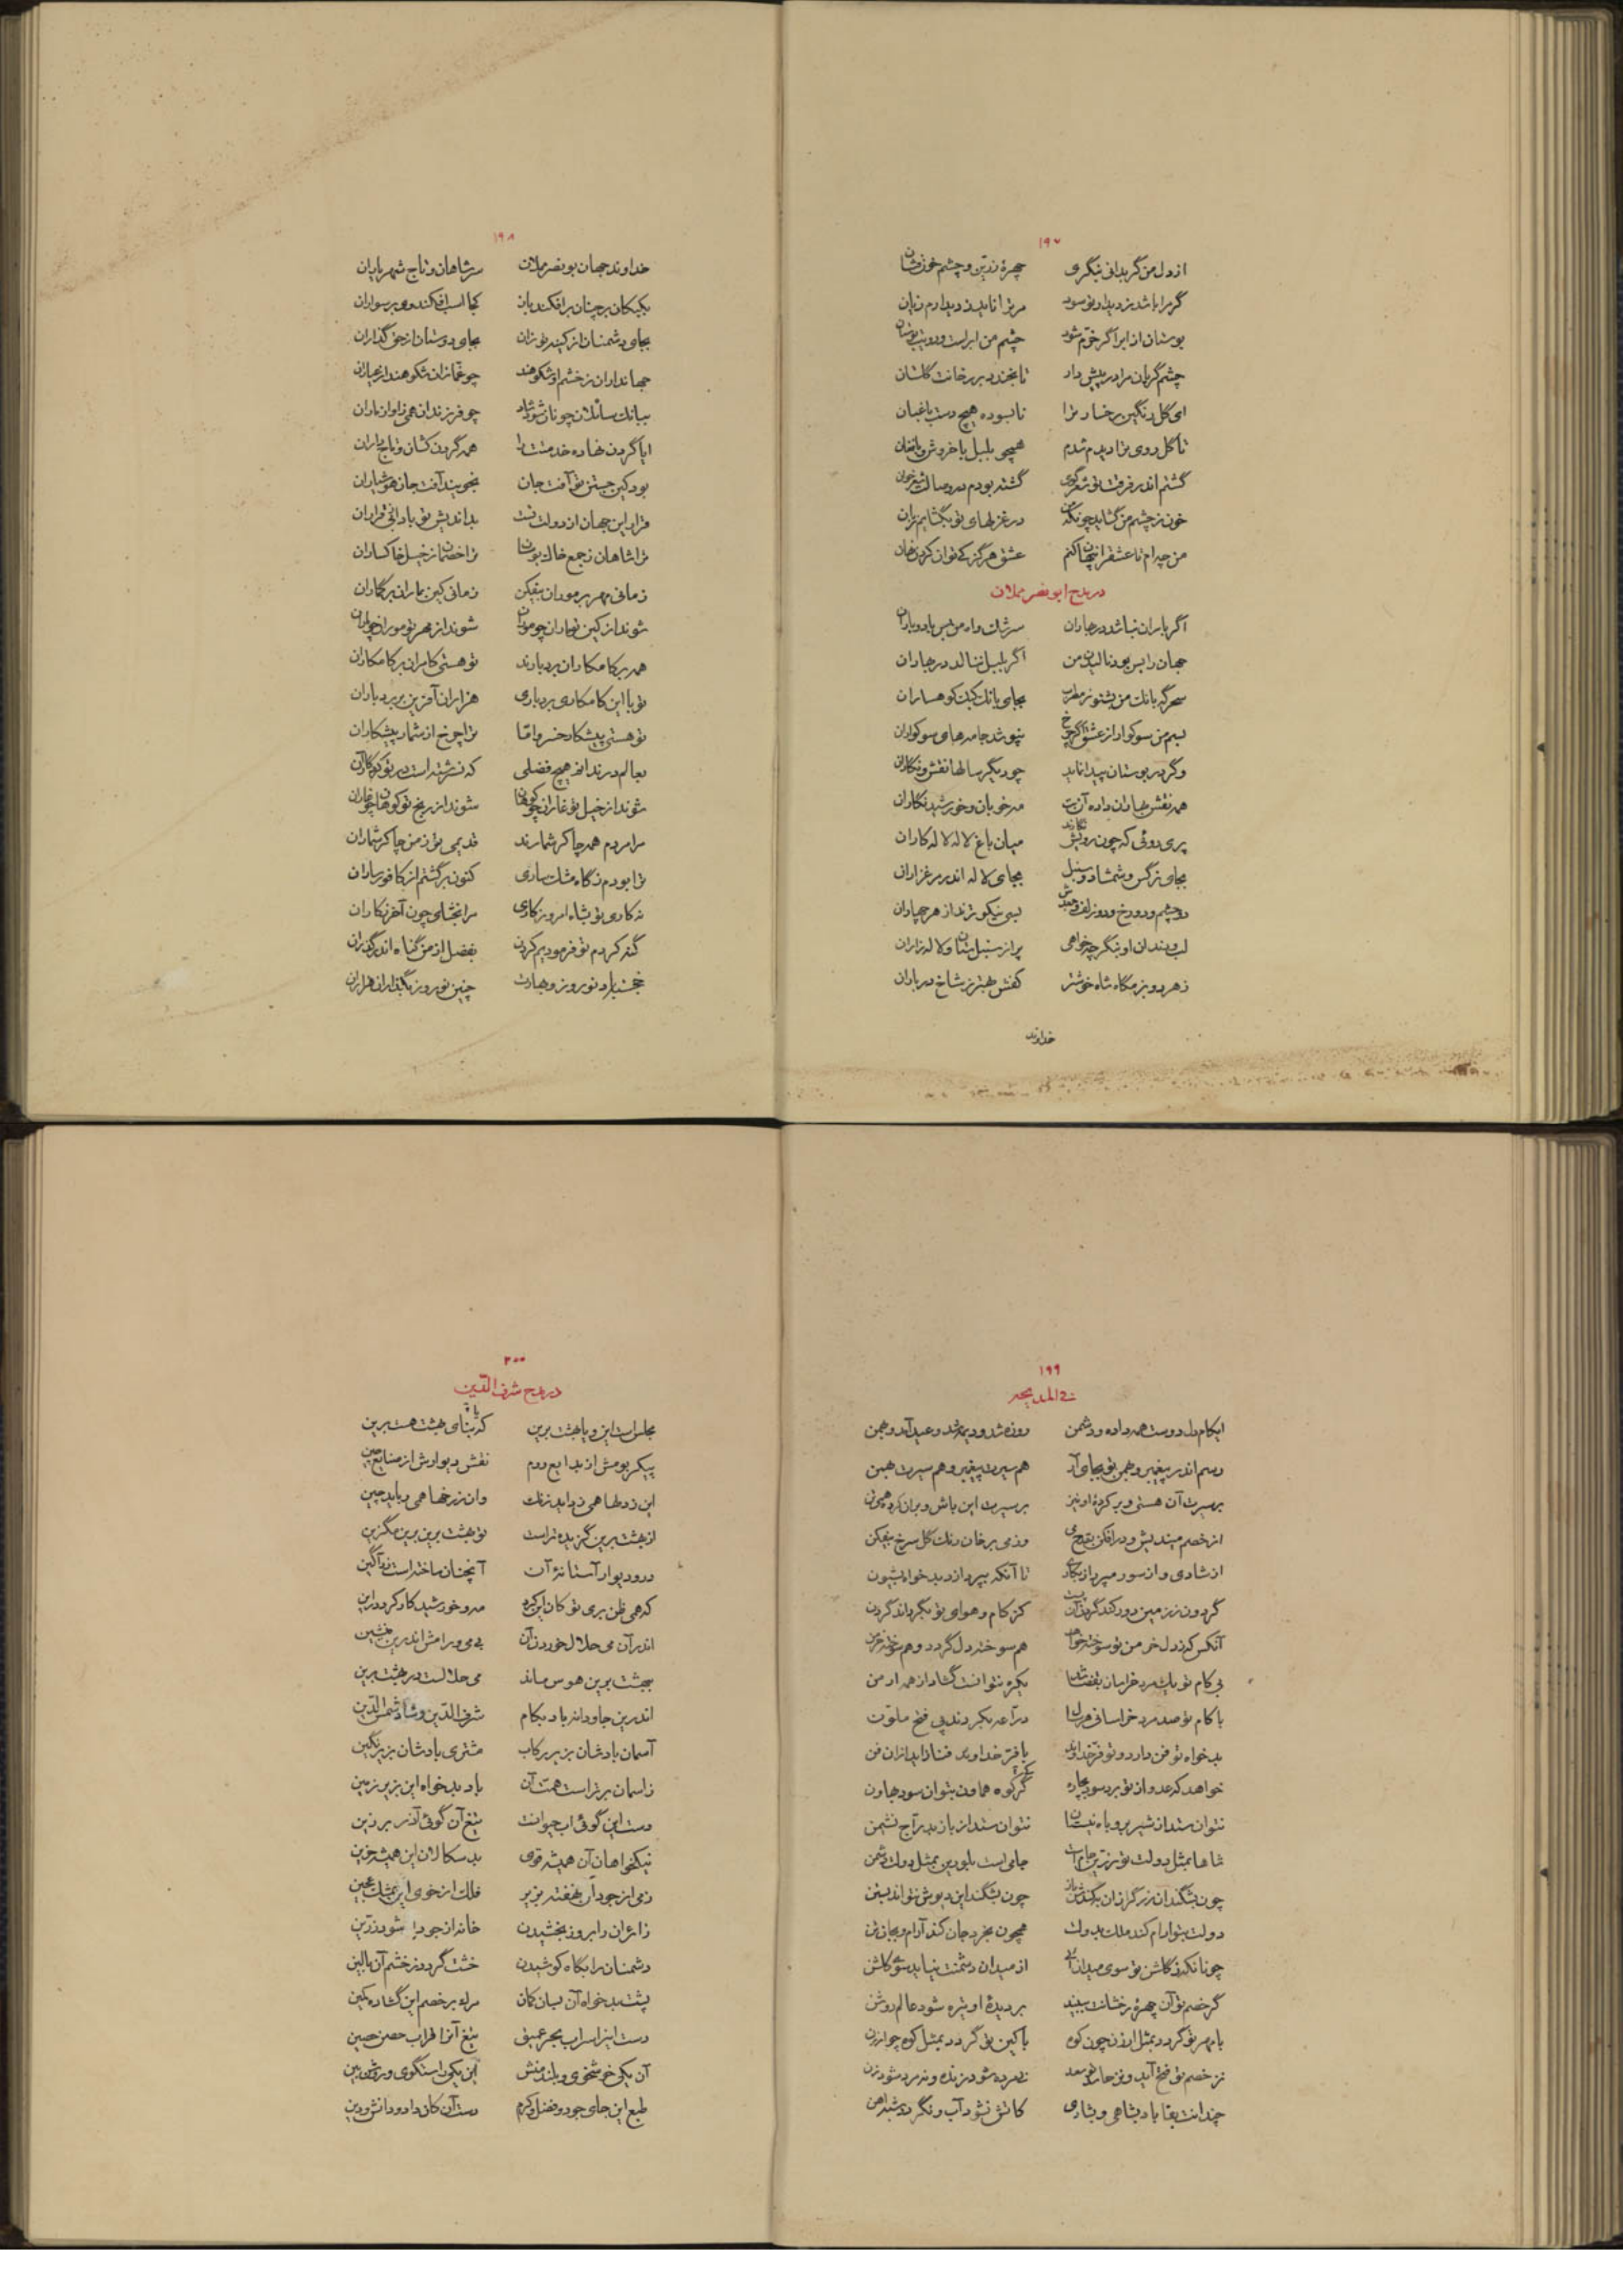 ۱۹۷
از دل من گر بدانی بنگری چهرهٔ زرین و چشم خون‌فشان
گر مرا باشد ز دیدار تو سود مر ترا ناید ز دیدارم زیان
بوستان از ابر اگر خرّم شود چشم من ابر است و رویت بوستان
چشم گریان مرا در پیش دار تا بخندد بر رخانت گلستان
ای گل رنگین رخسار ترا نابسوده هیچ دست باغبان
تا گل روی ترا دیدم شدم همچو بلبل با خروش و با فغان
گشتم اندر فرقت تو شعرگوی گشته بودم در وصالت شعرخوان
خون ز چشم من گشاید چونکه من در غزلهای تو بگشایم زبان
من چه‌ام تا عشق را پنهان کنم عشق هرگز کی توان کردن نهان
در مدح ابونصر مملان
اگر باران نباشد در بهاران سرشک و آه من بس باد و باران
جهان را بس بود نالیدن من اگر بلبل ننالد در بهاران
سحرگه بانک من بشنو ز مطرب بجای بانک کبک کوهساران
بسم من سوکوار از عشق اگر چرخ نپوشد جامه‌های سوکواران
وگر در بوستان پیدا نیاید چو دیگر سالها نقش و نگاران
همه نقش بهاران داده آن بت مه خوبان و خورشید نگاران
پری روئی که چون رویش نکارند میان باغ لاله لاله کاران
بجای نرگس و شمشاد و سنبل بجای لاله اندر مرغزاران
دو چشم و دو رخ و دو زلف و خدش بسی نیکوترند از هر چهاران
لب و دندان او بنگر چه خواهی پر از سنبل‌ستان و لاله‌زاران
ز هر دو بزمگاه شاه خوشتر کفش بهتر ز شاخ در باران
خداوند
۱۹۸
خداوند جهان بونصر مملان سر شاهان و تاج شهریاران
بیکپکان بر چنان برافکند بان کجا اسب افکند وی بر سواران
بجای دشمنان از کینه توزان بجای دوستان از حق گذاران
جهانداران ز خشم او شکوهند چو غمازان شکوهند از عیاران
ببانک سائلان چونان شود شاد چو فرزندان همی ز آواز یاران
ایا گردن نهاده خدمتت را همه گردن کشان و تاج داران
بود کین جستن تو آفت جان نجویند آفت جان هوشیاران
قرار این جهان از دولت تست بداندیش تو باد از بی‌قراران
ترا شاهان ز جمع خاک بوسان ترا خصمان ز خیل خاکساران
زمانی مهر بر موران بیفکن زمانی کین بماران بر گماران
شوند از کین تو ماران چو موران شوند از مهر تو موران چو ماران
همه بر کامکاران بردبارند تو هستی کامران بر کامکاران
تو با این کامکاری بردباری هزاران آفرین بر بردباران
تو هستی پیشکار خسرو اما ترا چرخ از شمار پیشکاران
بعالم در ندانم هیچ فضلی که نسرشته است در تو کردگار آن
شوند از خیل تو غاران چو کوهان شوند از رنج تو کوهان چو غاران
مرا مردم همه چاکر شمارند قدیمی تر ز من چاکر شماران
ترا بودم ز گاه مشک ساری کنون برگشتم از کافورساران
نه کاری تو بشاه امروز کاری مرا بخشای چون آخر نکاران
گنه کردم تو فرمودیم کردن بفضل از من گناه اندر گذاران
خجسته باد نوروز و بهارت چنین نوروز بگذاران هزاران
۱۹۹
فی المدیحه
ایکام دل دوست همه داده و دشمن روزه شد و دیمه شد و عید آمد و بهمن
رسم اندر پیغمبر و بهمن تو بجای آر هم سیرت پیغمبر و هم سیرت بهمن
بر سیرت آن هستی و بر کردهٔ او نیز بر سیرت این باش و بران کرده همی تن
از خصم میندیش و درافکن بقدح می وز می برخان رنک گل سرخ بیفکن
از شادی و از سور مپرداز بکاری تا آنکه بپردازد بدخواه بشیون
گردون ز زمین دور کند گردن آن کز کام و هوای تو بگرداند گردن
آنکس که ز دل خرمن تو سوخته خواهد هم سوخته دل گردد و هم سوخته خرمن
بی کام تو یک مرد خراسان بفضاشان یکره نتوانست گشاد از همه ارمن
با کام تو صد مرد خراسانی مر آنرا درّاعه بکردند پی فتح ملون
بدخواه تو فن دارد و تو فرّ خداوند با فرّ خداوند فنا زاید ازان فن
خواهد که عدو از تو برد سود بچاره گر کوه هماون بتوان سود بهاون
نتوان ستد از شیر بروباه نیستان نتوان ستد از باز بدرّاج نشیمن
شاها بمثل دولت تو زرّین جام است جامی است بلورین بمثل دولت دشمن
چون بشکند آن زرگر ازان به کندش باز چون بشکند این دیوش نتواند بستن
دولت بتو آرام کند ملک بدولت همچون بخرد جان کند آرام و بجان تن
چونانکه ز گلشن تو سوی میدان آئی از میدان دشمنت نیاید سوی گلشن
گر خصم تو آن چهرهٔ رخشانت ببیند بر دیدهٔ او تیره شود عالم روشن
با مهر تو گردد بمثل ارزن چون کوه با کین تو گردد بمثل کوه چو ارزن
نز خصم تو فتح آید و نز حاسد تو سعد نه مرده شود زنده و نه مرد شود زن
چندانت بقا باد بشاهی و بشادی کآتش نشود آب و نگردد شبه آهن
۲۰۰
در مدح شرف الدّین
مجلس است این و یا بهشت برین که بنای بهشت هست برین
پیکر بومش از بدایع روم نقش دیوارش از صنایع چین
این ز دلها همی زداید زنک وان ز رخها همی رباید چین
از بهشت برین گزیده تر است تو بهشت برین برین مگزین
در و دیوار آستانهٔ آن آنچنان ساخته است زر آگین
که همی ظن بری تو کان این کرد مه و خورشید کار کرد در این
اندر آن می حلال خوردن آن بی می و رامش اندرین منشین
ببهشت برین هوس ماند می حلالست در بهشت برین
اندرین جاودانه باد بکام شرف الدّین و شاه شمس الدّین
آسمان بادشان بزیر رکاب مشتری بادشان بزیر نگین
ز آسمان برتر است همت آن باد بدخواه این بزیر زمین
دست این گوئی آب حیوانست تیغ آن گوئی آذر برزین
نیکخواهان آن همیشه قوی بدسکالان این همیشه حزین
زمی از جود آن نهفته بزیر فلک از خوی این بمشک عجین
زائران را بروز بخشیدن خانه از جود او شود زرّین
دشمنان را بگاه کوشیدن خشت گردد ز خشم آن بالین
پشت بدخواه آن بسان کمان مرک بر خصم این گشاده کمین
دست این را سراب بحر عمیق تیغ آنرا خراب حصن حصین
آن یکی خوشخوی و بلند منش این یکی راستگوی و روشن بین
طبع این جای جود و فضل و کرم دست آن کان داد و دانش و دین